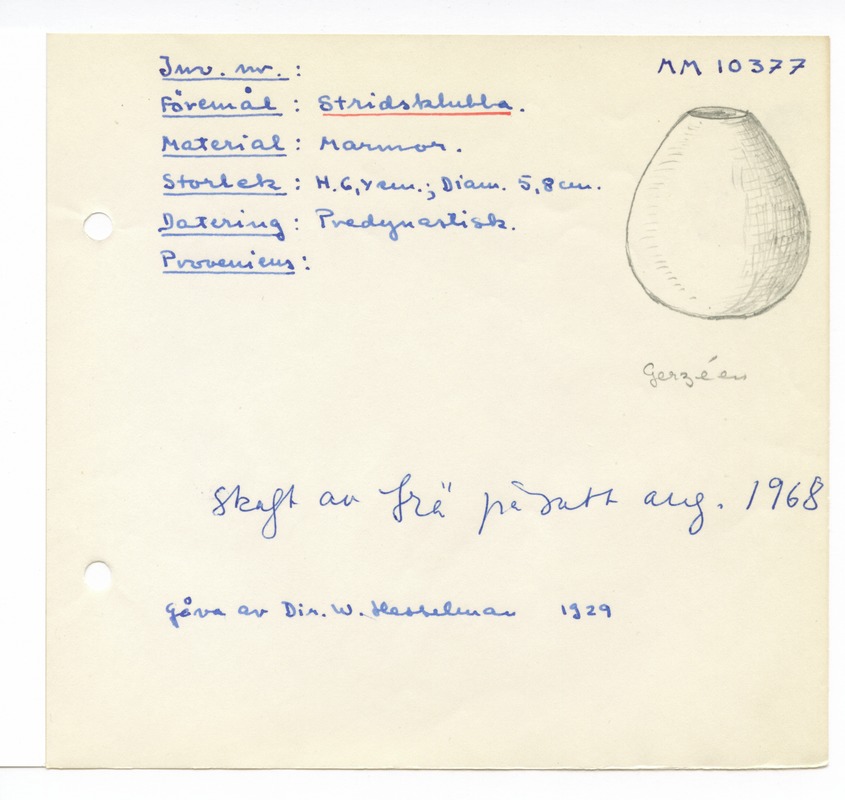 Inv. nr. : MM 10377
Föremål : Stridsklubba.
Material : Marmor.
Storlek : H. 6,4 cm.; Diam. 5,8 cm.
Datering : Predynastisk.
Proveniens :
Gerzéen
Skaft av trä påsatt aug. 1968
Gåva av Dir. W. Hesselman 1929